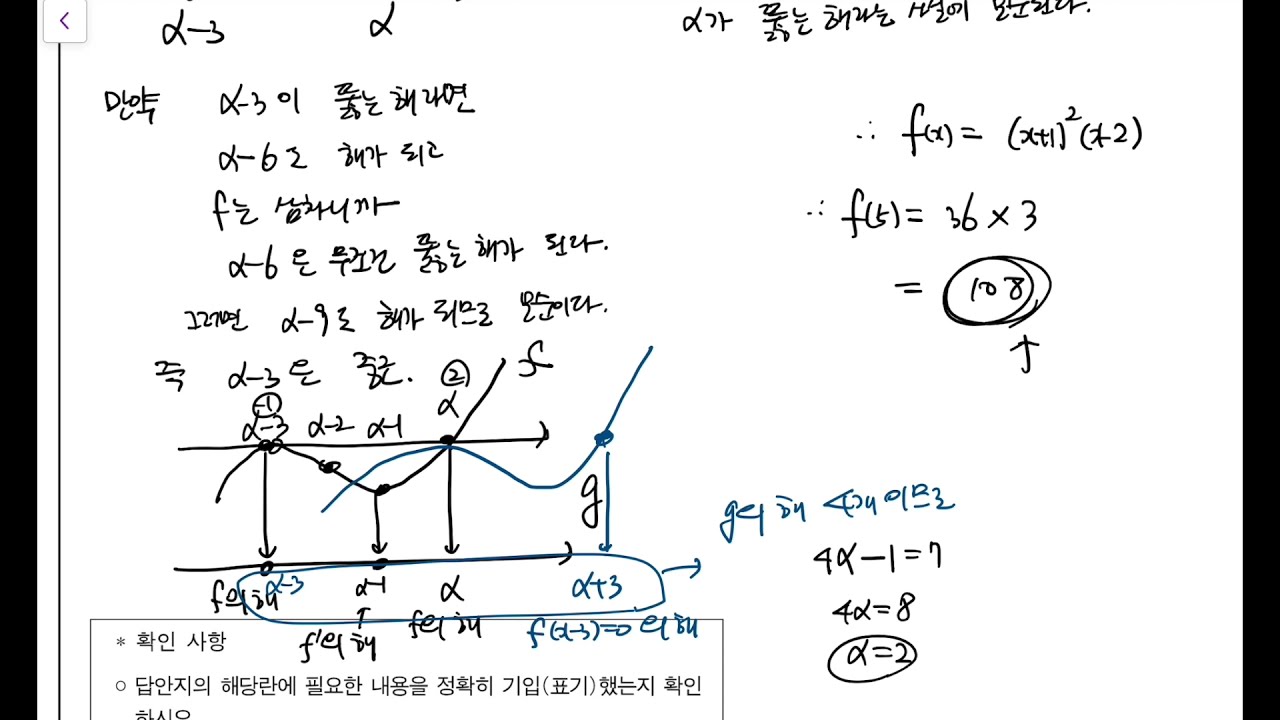 α-3 α
α가 뚫는 해라는 사실에 모순된다.
만약 α-3이 뚫는 해라면
α-6도 해가 되고
f는 삼차니까
α-6은 무조건 뚫는 해가 된다.
그러면 α-9도 해가 되므로 모순이다.
즉 α-3은 중근.
∴ f(x) = (x+1)²(x-2)
∴ f(5) = 36 × 3
= 108
f
-1 2
α-3 α-2 α-1 α
g
α-3 α-1 α α+3
f의 해 f'의 해 f의 해 f(x-3)=0의 해
g의 해 4개이므로
4α-1=7
4α=8
α=2
* 확인 사항
○ 답안지의 해당란에 필요한 내용을 정확히 기입(표기)했는지 확인
하시오